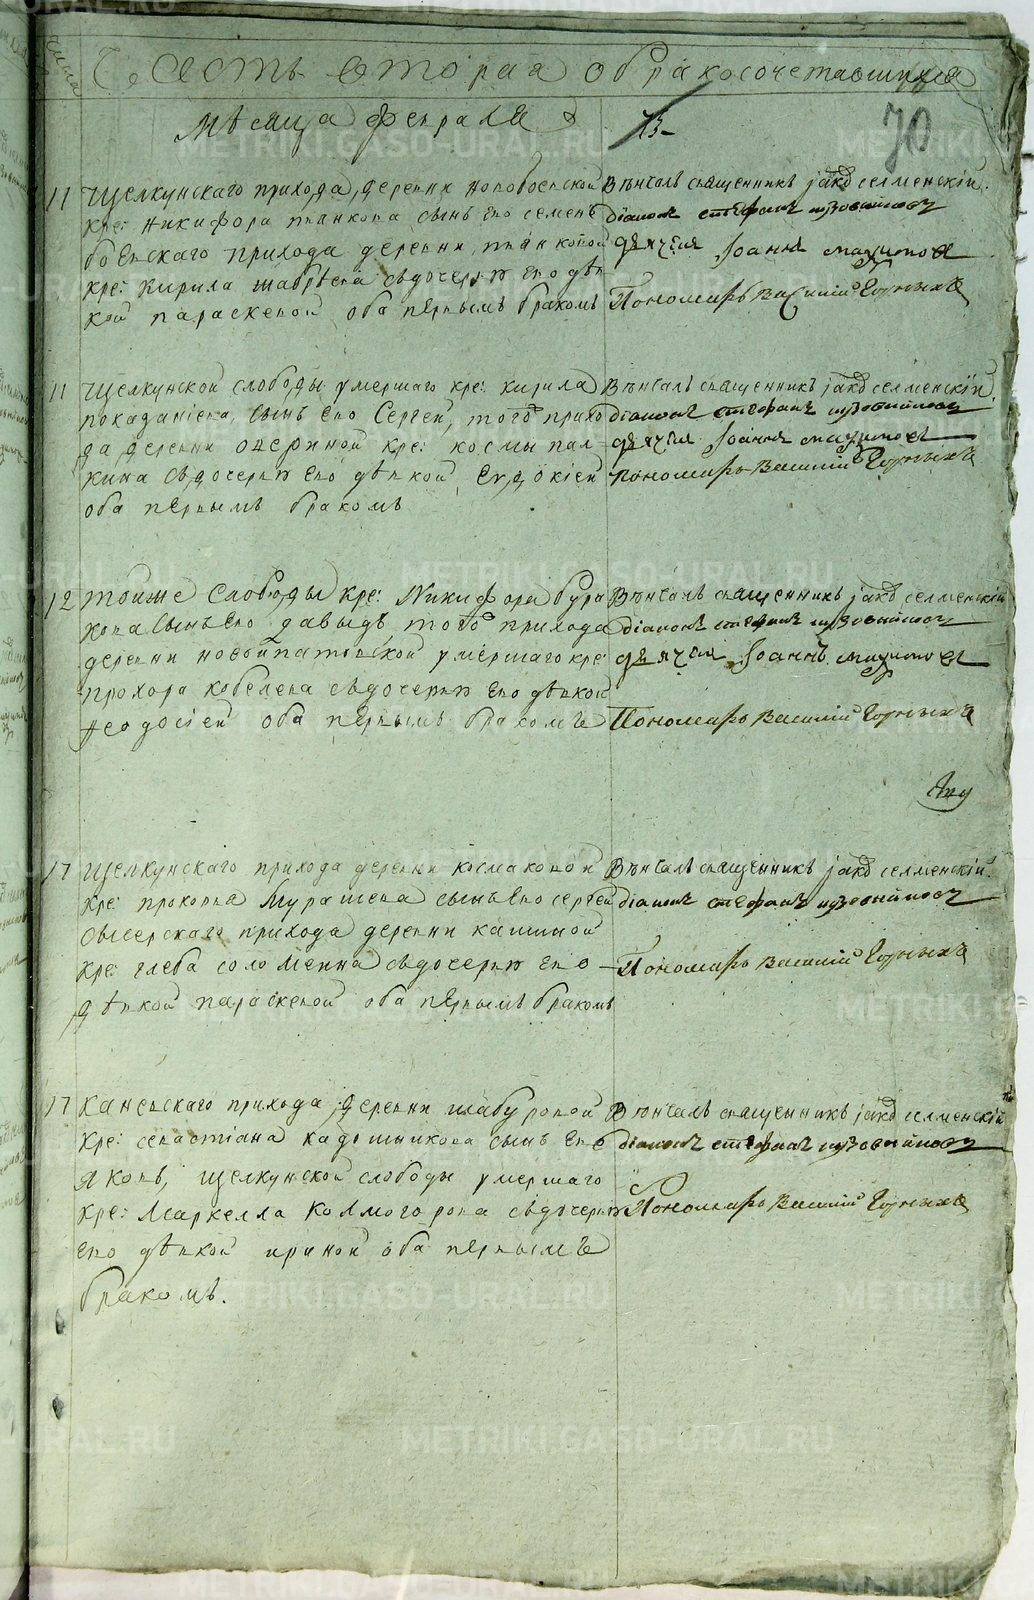 числа
Часть вторая о бракосочетавшихся
месяца февраля
70
11 Щелкунскаго прихода деревни новобоевской
кре: Никифора панкова сынъ его семенъ
боевскаго прихода деревни панковой
кре: Кирила шабрѣва съдочерью его дѣв
кой параскевой оба первымъ бракомъ
Вѣнчалъ священникъ іаковъ селменскій.
діаконъ стефанъ
дьячекъ Іоаннъ
Пономарь Василій Горныхъ
11 Щелкунской слободы умершаго кре: кирила
сынъ его Сергей, того прихо
да деревни озериной кре: космы пал
кина съдочерью его дѣвкой Евдокіей
оба первымъ бракомъ
Вѣнчалъ священникъ іаковъ селменскій.
діаконъ стефанъ
дьячекъ Іоаннъ
пономарь Василій Горныхъ
12 тойже Слободы кре: Никифора бура
кова сынъ его давыдъ, того прихода
деревни новоипатьевской умершаго кре:
прохора кобелева съдочерью его дѣвкой
феодосіей оба первымъ бракомъ
Вѣнчалъ священникъ іаковъ селменскій
діаконъ стефанъ
дьячекъ Іоаннъ
Пономарь Василій Горныхъ
17 Щелкунскаго прихода деревни космаковой
кре: прокопья Мурашева сынъ его сергей
сысерскаго прихода деревни кашиной
кре: глеба соломеина съдочерью его
дѣвкой параскевой оба первымъ бракомъ
Вѣнчалъ священникъ іаковъ селменскій.
діаконъ стефанъ
Пономарь Василій Горныхъ
17 Каневскаго прихода деревни шабуровой
кре: севастіана кадошникова сынъ его
яковъ, щелкунской слободы умершаго
кре: Маркелла Колмогорова съдочерью
его дѣвкой ириной оба первымъ
бракомъ.
Вѣнчалъ священникъ іаковъ селменскій
діаконъ стефанъ
Пономарь Василій Горныхъ
METRIKI.GASO-URAL.RU